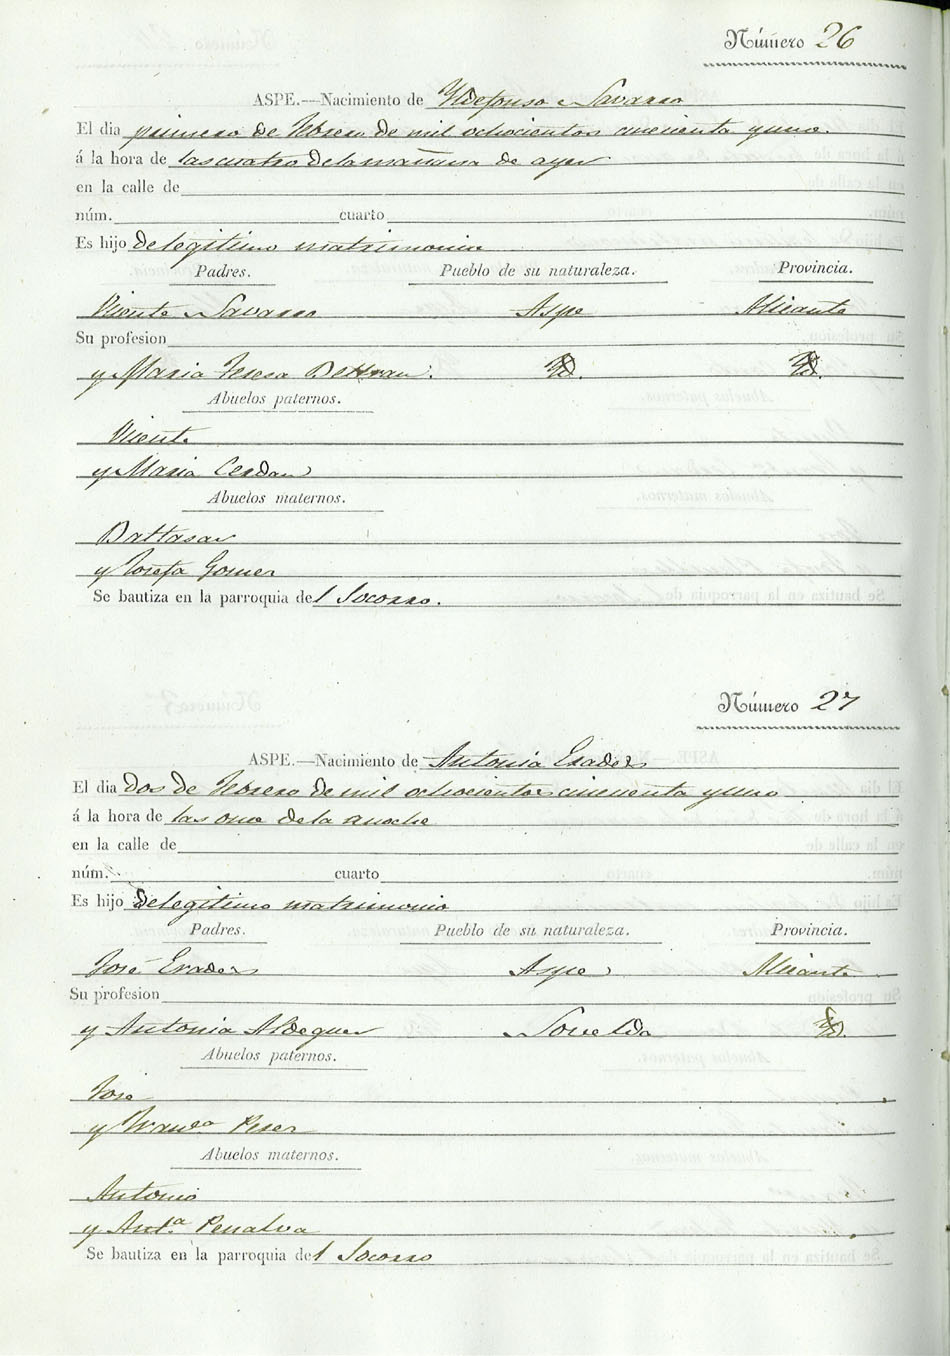 Número 26
ASPE.—Nacimiento de Yldefonso Navarro
El dia primero de Febrero de mil ochocientos cincuenta y uno.
á la hora de las cuatro de la mañana de ayer
en la calle de
núm. cuarto
Es hijo de legitimo matrimonio
Padres. Pueblo de su naturaleza. Provincia.
Vicente Navarro Aspe Alicante
Su profesion
y Maria Teresa Beltran. Yd. Yd.
Abuelos paternos.
Vicente
y Maria Cerdan
Abuelos maternos.
Baltasar
y Josefa Gomez
Se bautiza en la parroquia del Socorro.
Número 27
ASPE.—Nacimiento de Antonia Erades
El dia dos de Febrero de mil ochocientos cincuenta y uno
á la hora de las once de la anoche
en la calle de
núm. cuarto
Es hijo de legitimo matrimonio
Padres. Pueblo de su naturaleza. Provincia.
José Erades Aspe Alicante
Su profesion
y Antonia Aldeguer Novelda Yd.
Abuelos paternos.
Jose
y Franca Perez
Abuelos maternos.
Antonio
y Anta Penalva
Se bautiza en la parroquia del Socorro